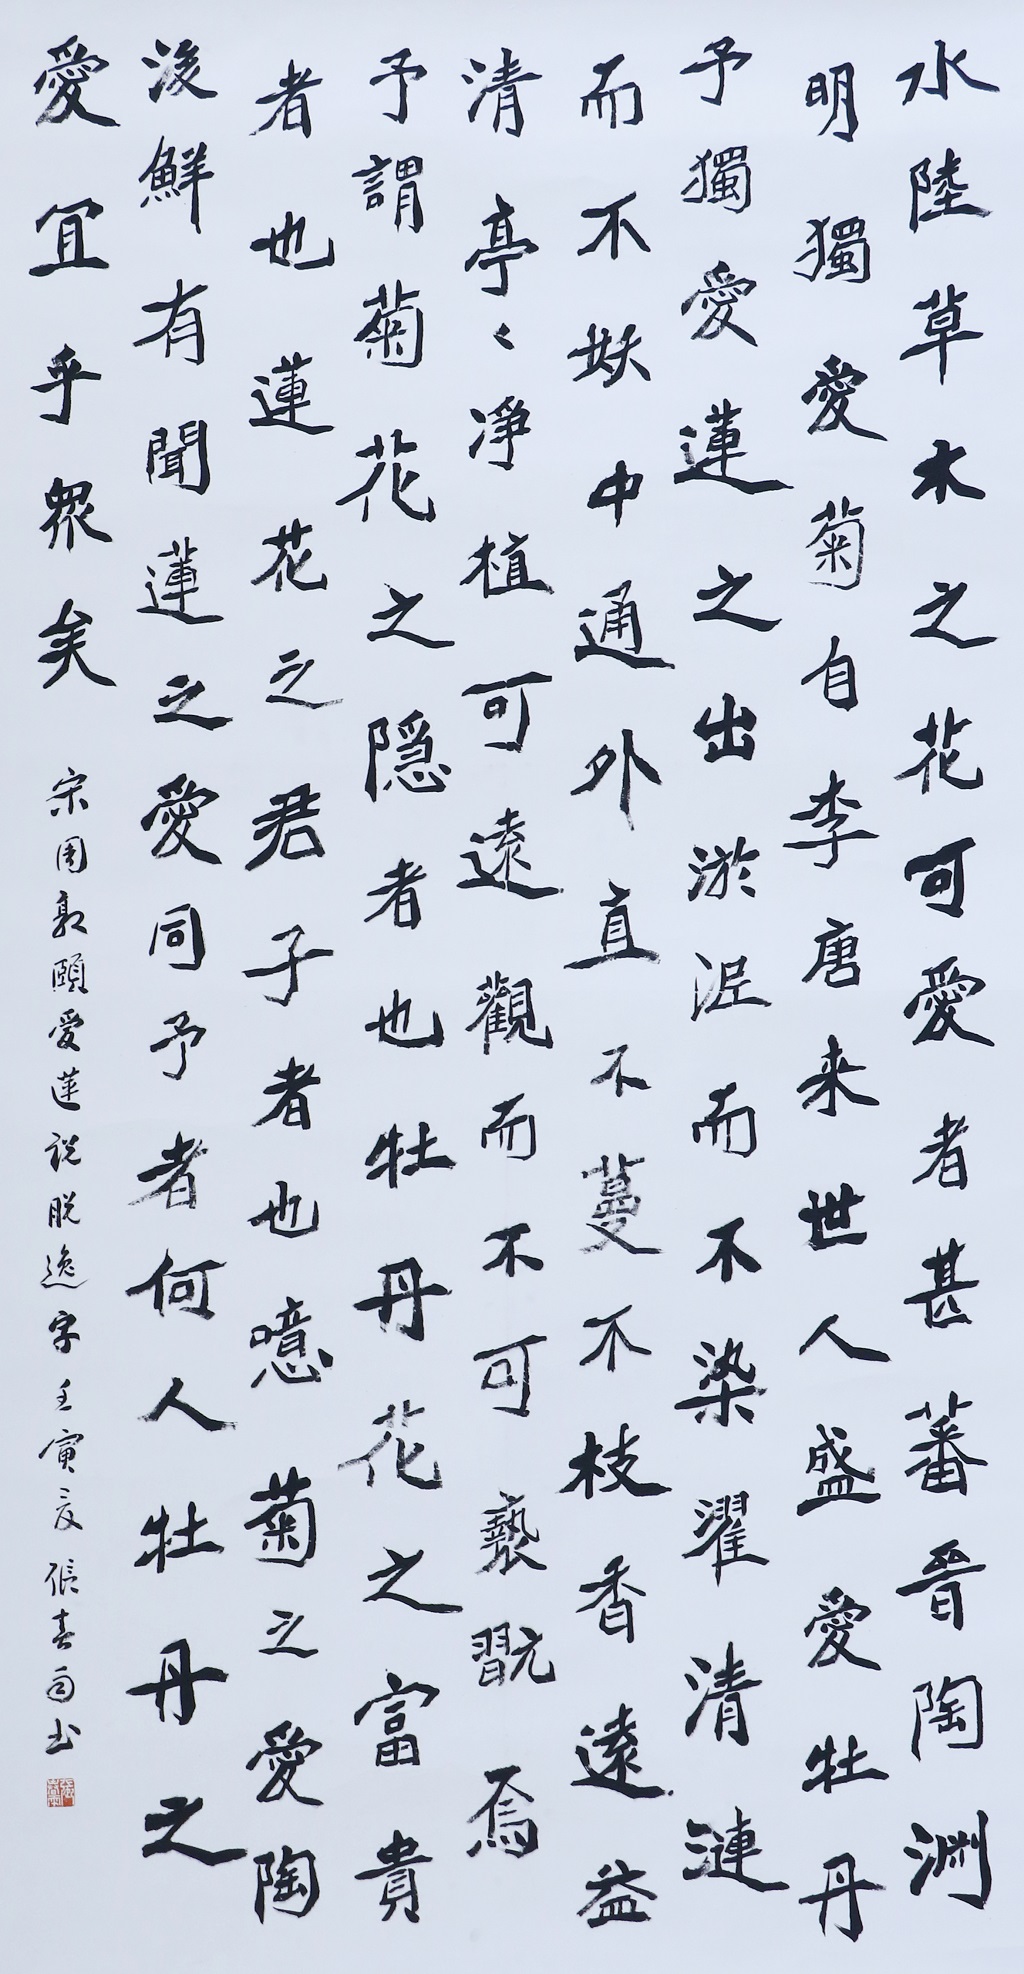 水陸草木之花可愛者甚蕃晉陶淵
明獨愛菊自李唐来世人盛愛牡丹
予獨愛蓮之出淤泥而不染濯清漣
而不妖中通外直不蔓不枝香遠益
清亭〻淨植可遠觀而不可褻翫焉
予謂菊花之隱者也牡丹花之富貴
者也蓮花之君子者也噫菊之愛陶
後鮮有聞蓮之愛同予者何人牡丹之
愛宜乎眾矣
宋周敦頤愛蓮説脱逸字壬寅之夏張春雨书